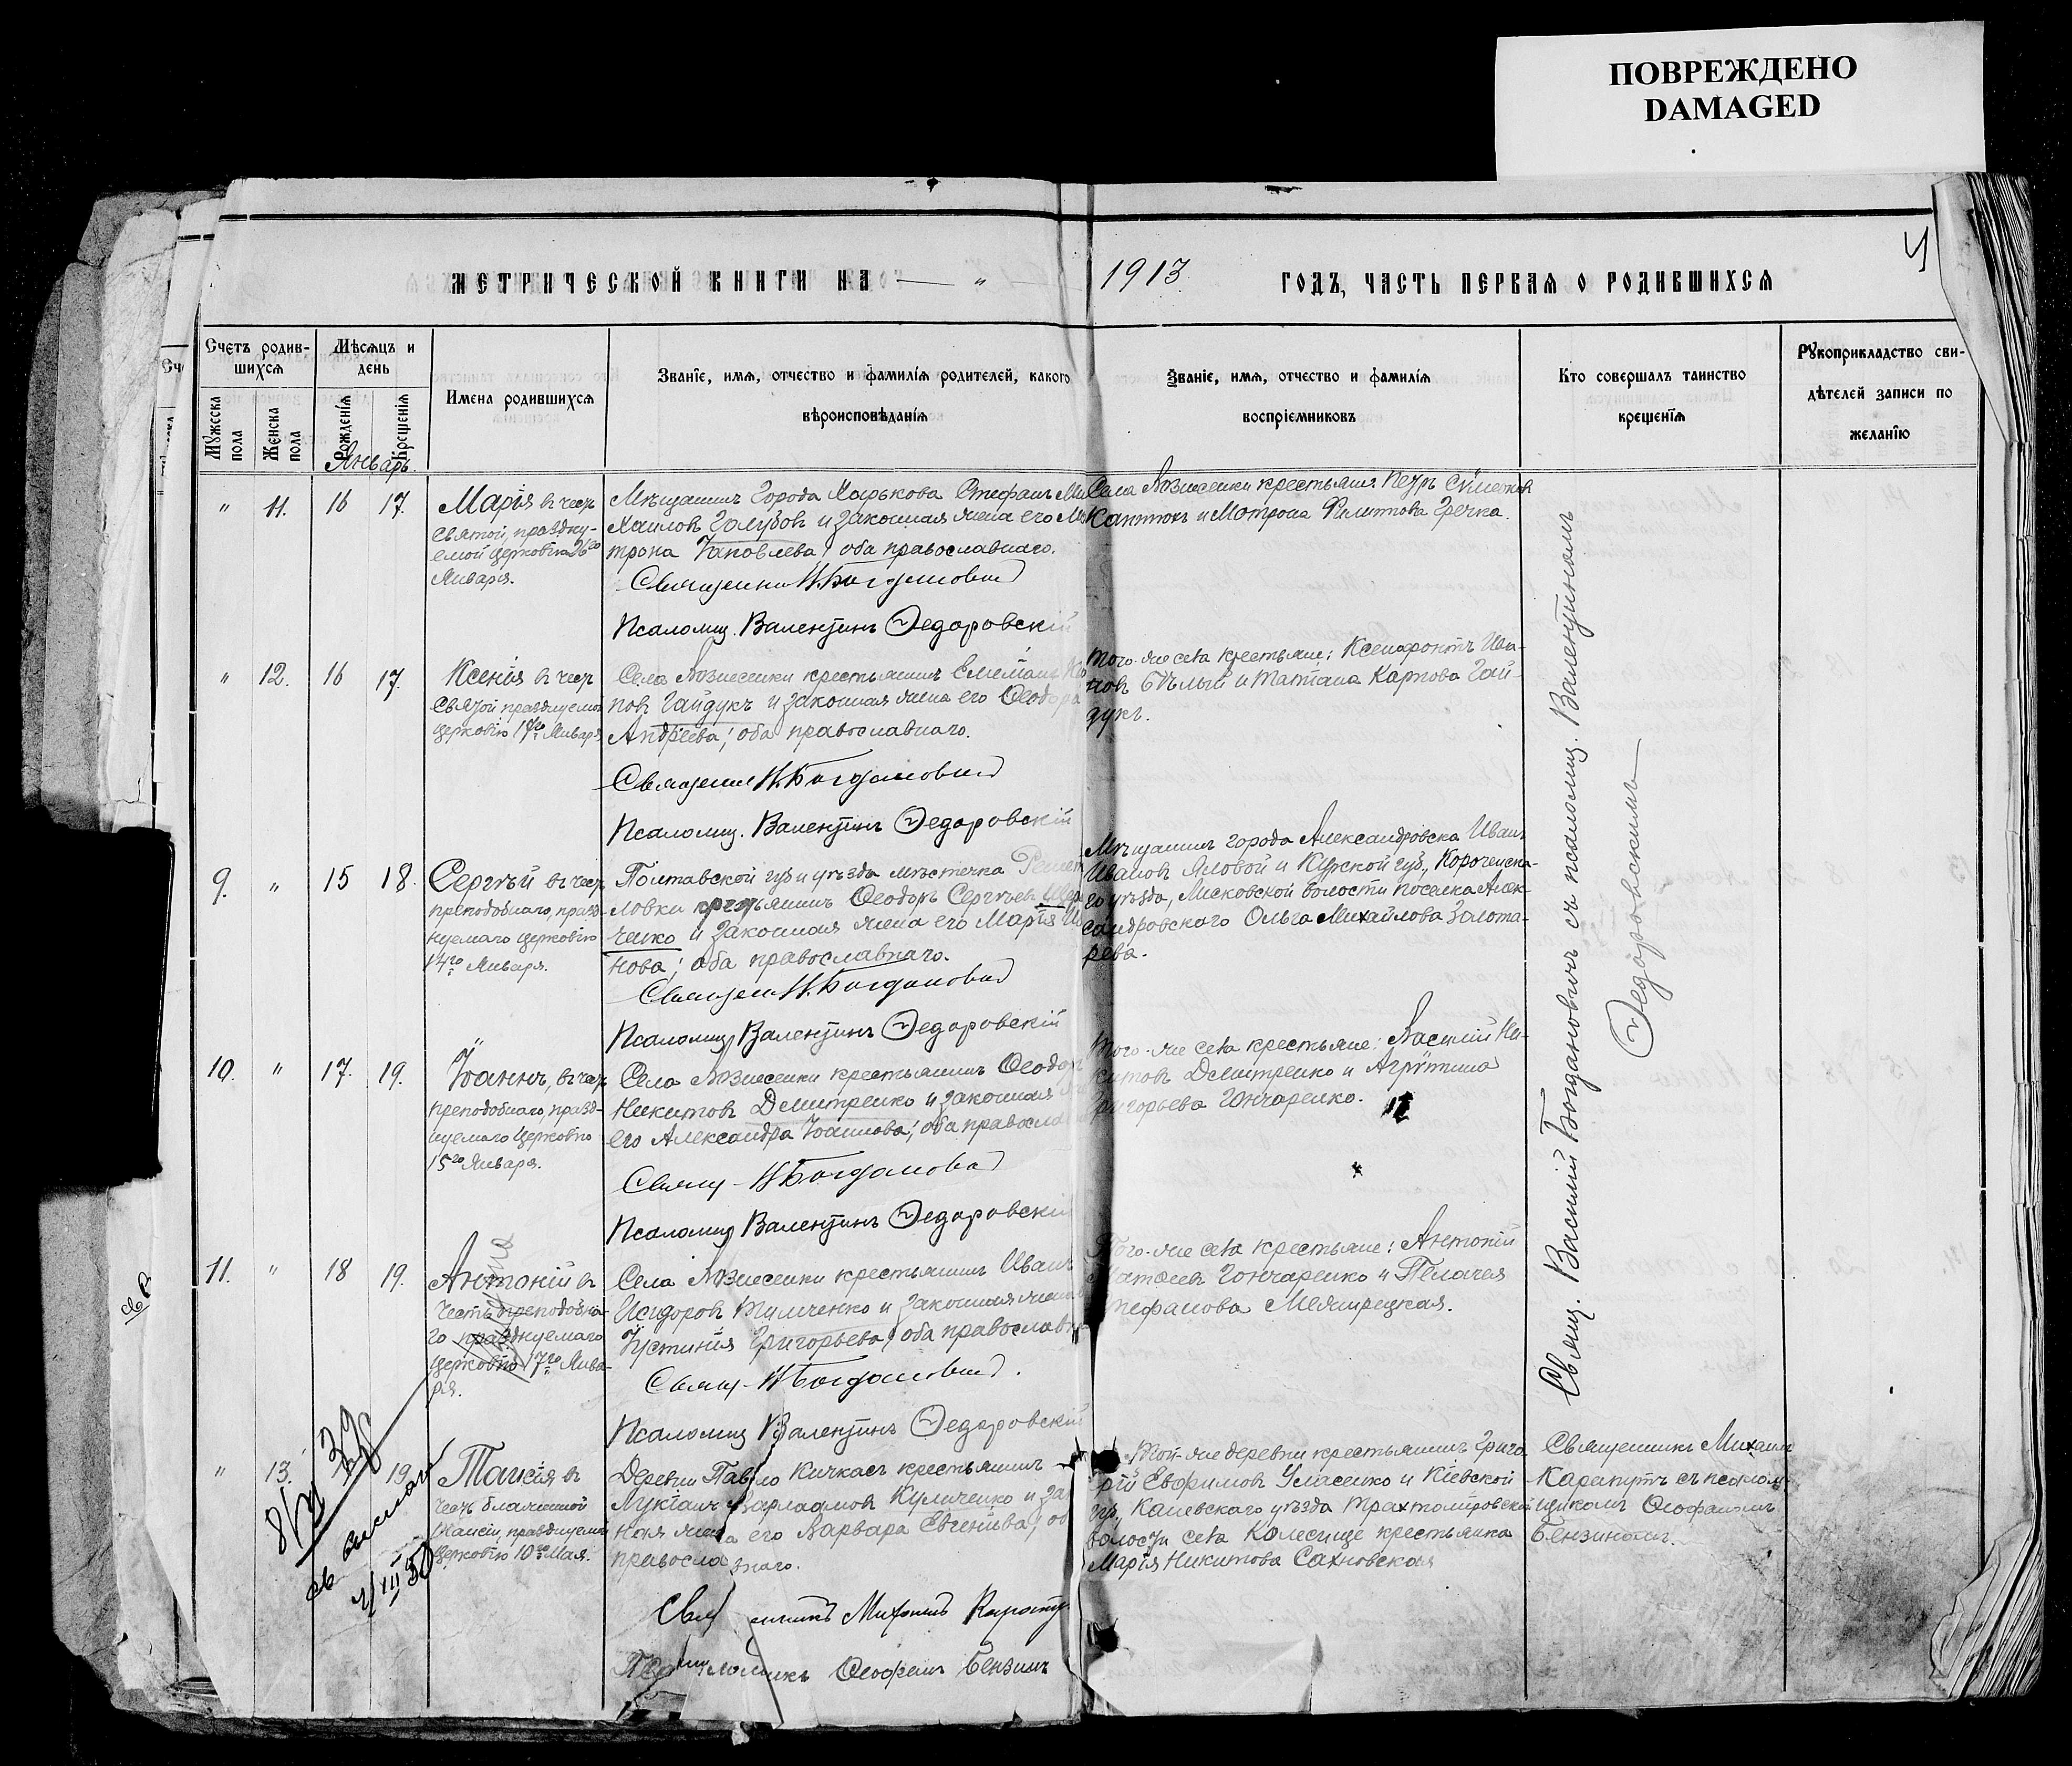 ПОВРЕЖДЕНО
DAMAGED
4
МЕТРИЧЕСКОЙ КНИГИ НА — „ — 1913. ГОДЪ, ЧАСТЬ ПЕРВАЯ О РОДИВШИХСЯ
Счетъ родив-
шихся
Мужеска пола
Женска пола
Мѣсяцъ и
день
Рожденія
Крещенія
Январь.
Имена родившихся
Званіе, имя, отчество и фамилія родителей, какого
вѣроисповѣданія
Званіе, имя, отчество и фамилія
воспріемниковъ
Кто совершалъ таинство
крещенія
Рукоприкладство сви-
дѣтелей записи по
желанію
„ 11. 16 17.
Марія въ чест
святой, праздну-
емой церковію 26го
Января.
Мѣщанинъ города Харькова Стефанъ Ми
хаиловъ Голубовъ и законная жена его Ма
трона Іаковлева; оба православнаго.
Священникъ В. Богдановичъ
Псаломщ. Валентинъ Ѳедоровскій
Села Вознесенки крестьян. Петръ Сѵмеоновъ
и Матрона Филиппова Гречка.
„ 12. 16 17.
Ксенія въ чест
святой празднуемой
церковію Января
Села Вознесенки крестьянинъ Емеліанъ
повъ Гайдукъ и законная жена его Ѳеодора
Андреева; оба православнаго.
Священник В. Богдановичъ
Псаломщ. Валентинъ Ѳедоровскій
Того-же села крестьяне: Ксенофонтъ Ива-
новъ Бѣлый и Татіана Карпова Гай-
дукъ.
9. „ 15 18.
Сергѣй въ чест
преподобнаго, празд-
нуемаго церковію
14го Января.
Полтавской губ и уѣзда мѣстечка Решет
ловки крестьянинъ Ѳеодоръ Сергѣевъ
ченко и законная жена его Марія Ива
нова; оба православнаго.
Священ В. Богдановичъ
Псаломщ Валентинъ Ѳедоровскій
Мѣщанинъ города Александровска Иванъ
Ивановъ Яловой и Курской губ., Корочанска-
го уѣзда, волости поселка Алек-
сандровскаго Ольга Михайлова Золота-
рева.
10. „ 17. 19.
Іоаннъ, въ чест
преподобнаго, празд-
нуемаго церковію
15го Января.
Села Вознесенки крестьянинъ Ѳеодоръ
Никитовъ Дмитренко и законная
его Александра Іоаннова; оба православ
Свящ - В. Богдановичъ
Псаломщ Валентинъ Ѳедоровскій
Того-же села крестьяне: Василій Ни-
китовъ Дмитренко и Агриппина
Григорьева Гончаренко.
11. „ 18 19.
Антоній въ
честь преподобна-
го празднуемаго
церковію 17го Янва-
рія.
Села Вознесенки крестьянинъ Иванъ
Исидоровъ Тимченко и законная жена
Іустинія Григорьева; оба православн
Свящ - В. Богдановичъ.
Псаломщ Валентинъ Ѳедоровскій
Того-же села крестьяне: Антоній
Матѳеевъ Гончаренко и Пелагея
Стефанова Межирецкая.
Свящ. Василій Богдановичъ съ псаломщ. Валентиномъ
Ѳедоровскимъ
„ 13. 19
Таисія въ
честь блаженной
Таисіи, празднуемой
церковію 10го Мая.
Деревни Павло Кичкасъ крестьянинъ
Лукіанъ Варлаамовъ Куличенко и за
ная жена его Варвара Евгеніева; об
православнаго.
Священникъ Михаилъ
Псаломщикъ Ѳеофанъ Бензинъ
Той-же деревни крестьянинъ Григо-
рій Евфимовъ Уласенко и Кіевской
губ., Каневскаго уѣзда Трахтомировской
волости села Колесище крестьянка
Марія Никитова Сахновская
Священникъ Михаилъ
съ псалом-
щикомъ Ѳеофаномъ
Бензинымъ.
III 50